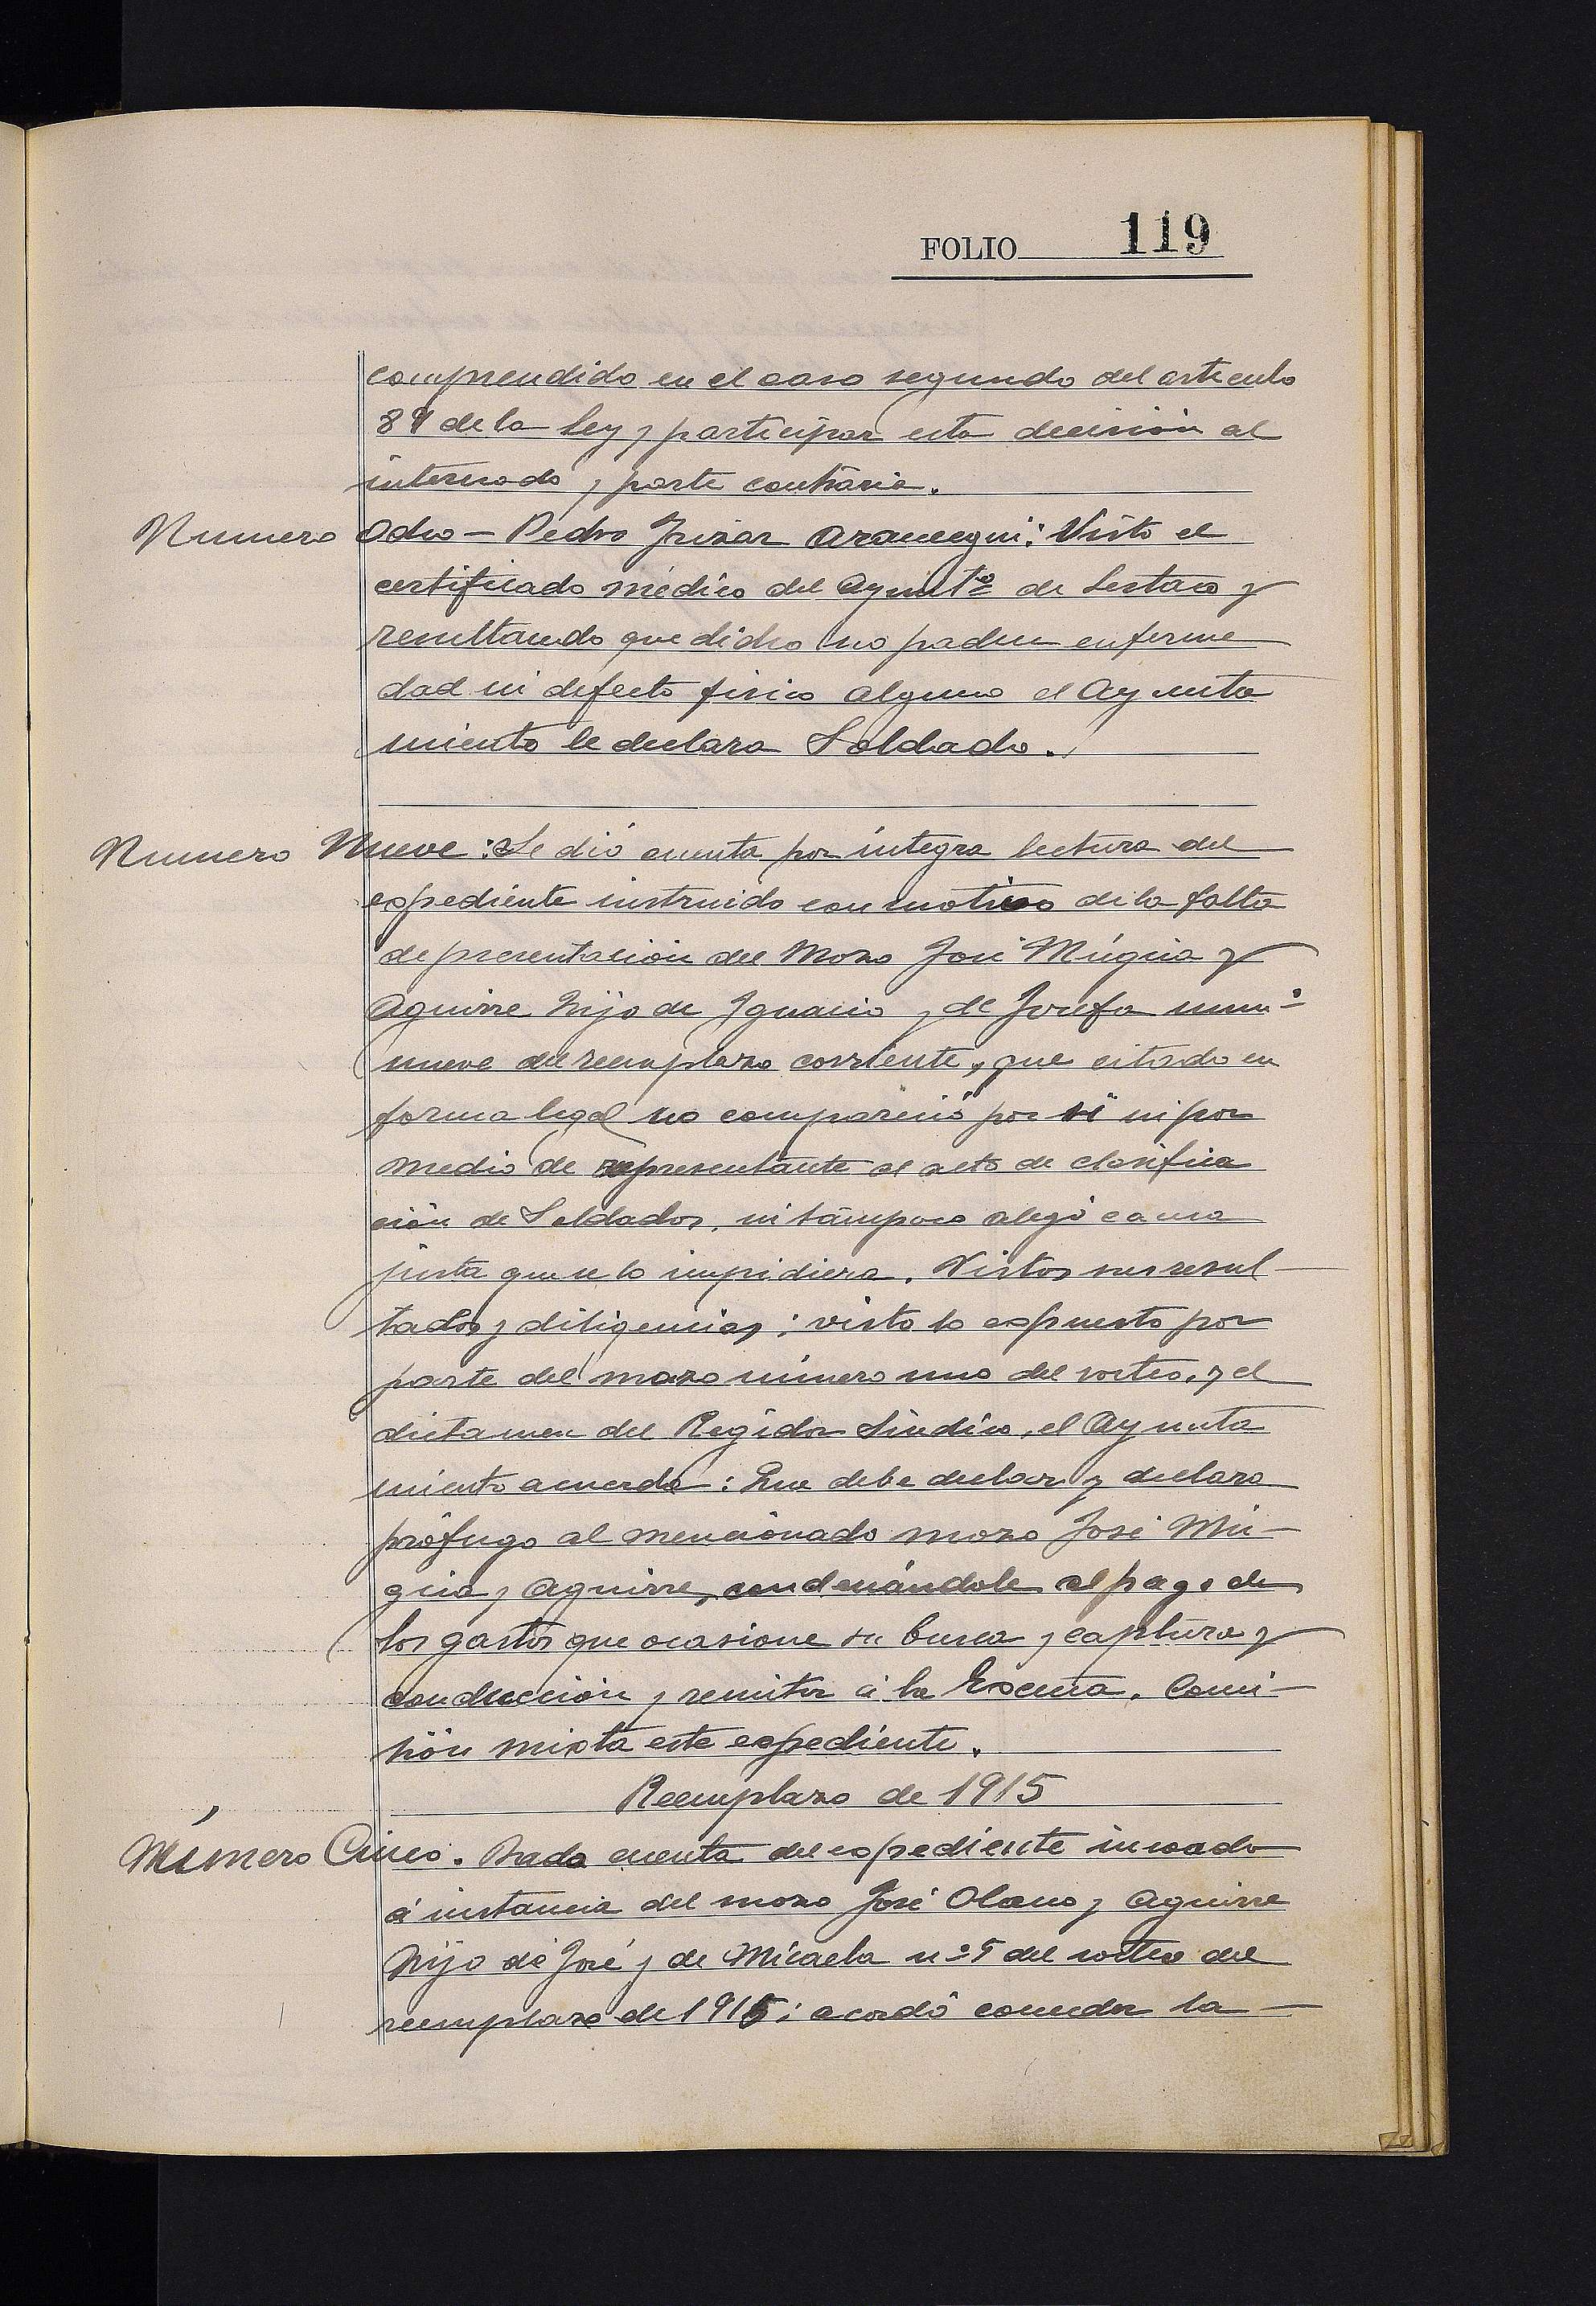 FOLIO 119
comprendido en el caso segundo del articulo
89 de la Ley y participar esta decisión al
interesado y parte contraria.
Numero Ocho — Pedro Irizar Aramegui: Visto el
certificado médico del Ayuntº de Lestaco y
resultando que dicho no padece enferme
dad ni defecto físico alguno el Ayunta
miento le declara Soldado.
Numero Nueve: Se dió cuenta por íntegra lectura del
expediente instruido con motivo de la falta
de presentación del Mozo José Múgica y
Aguirre hijo de Ignacio y de Josefa numº
nueve del reemplazo corriente, que citado en
forma legal no compareció por sí ni por
medio de representante al acto de clasifica
ción de Soldados, ni tampoco alegó causa
justa que se lo impidiera. Vistos sus resul-
tados y diligencias; visto lo expuesto por
parte del mozo número uno del sorteo, y el
dictamen del Regidor Síndico, el Ayunta
miento acuerda: Que debe declarar y declara
prófugo al mencionado mozo José Mú-
gica y Aguirre, condenándole al pago de
los gastos que ocasione su busca y captura y
conducción y remitir á la Excma. Comi-
sión mixta este expediente.
Reemplazo de 1915
Número Cinco. Dada cuenta del expediente incoado
á instancia del mozo José Olano y Aguirre
hijo de José y de Micaela nº 5 del sorteo del
reemplazo de 1915; acordó conceder la